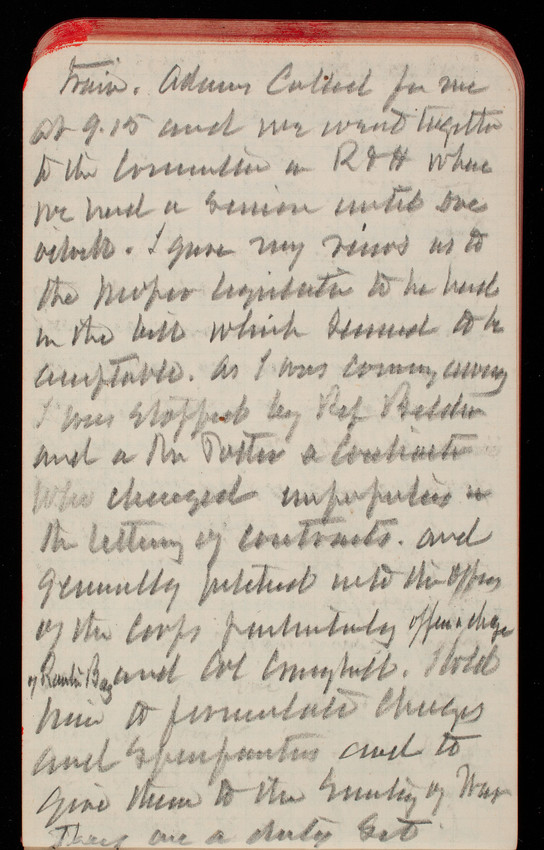 train. Adams Called for me
at 9.15 and we went together
to the Committee on R & H where
we had a session until one
oclock. I gave my views as to
the proper legislation to be had
in the bill which seemed to be
acceptable. As I was coming away
I was stopped by Rep Belden
and a Mr Potter a Contractor
who charged improprieties in
the letting of contracts. and
generally pitched into the Officers
of the Corps particularly officer in charge
of Bay and Col Craighill. I told
him to formulate charges
and Specifications and to
give them to the Secretary of War
They are a dirty set